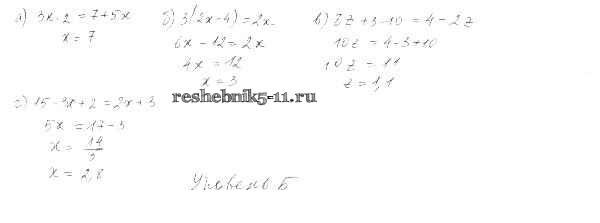 а) 3x - 2 = 7 + 5x
x = 7
б) 3(2x - 4) = 2x
6x - 12 = 2x
4x = 12
x = 3
в) 8z + 3 - 10 = 4 - 2z
10z = 4 - 3 + 10
10z = 11
z = 1,1
г) 15 - 3x + 2 = 2x + 3
5x = 17 - 3
x = 14/5
x = 2,8
reshebnik5-11.ru
Уровень Б